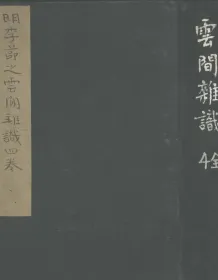 雲間雜識
4全
明李節之雲間雜識四卷